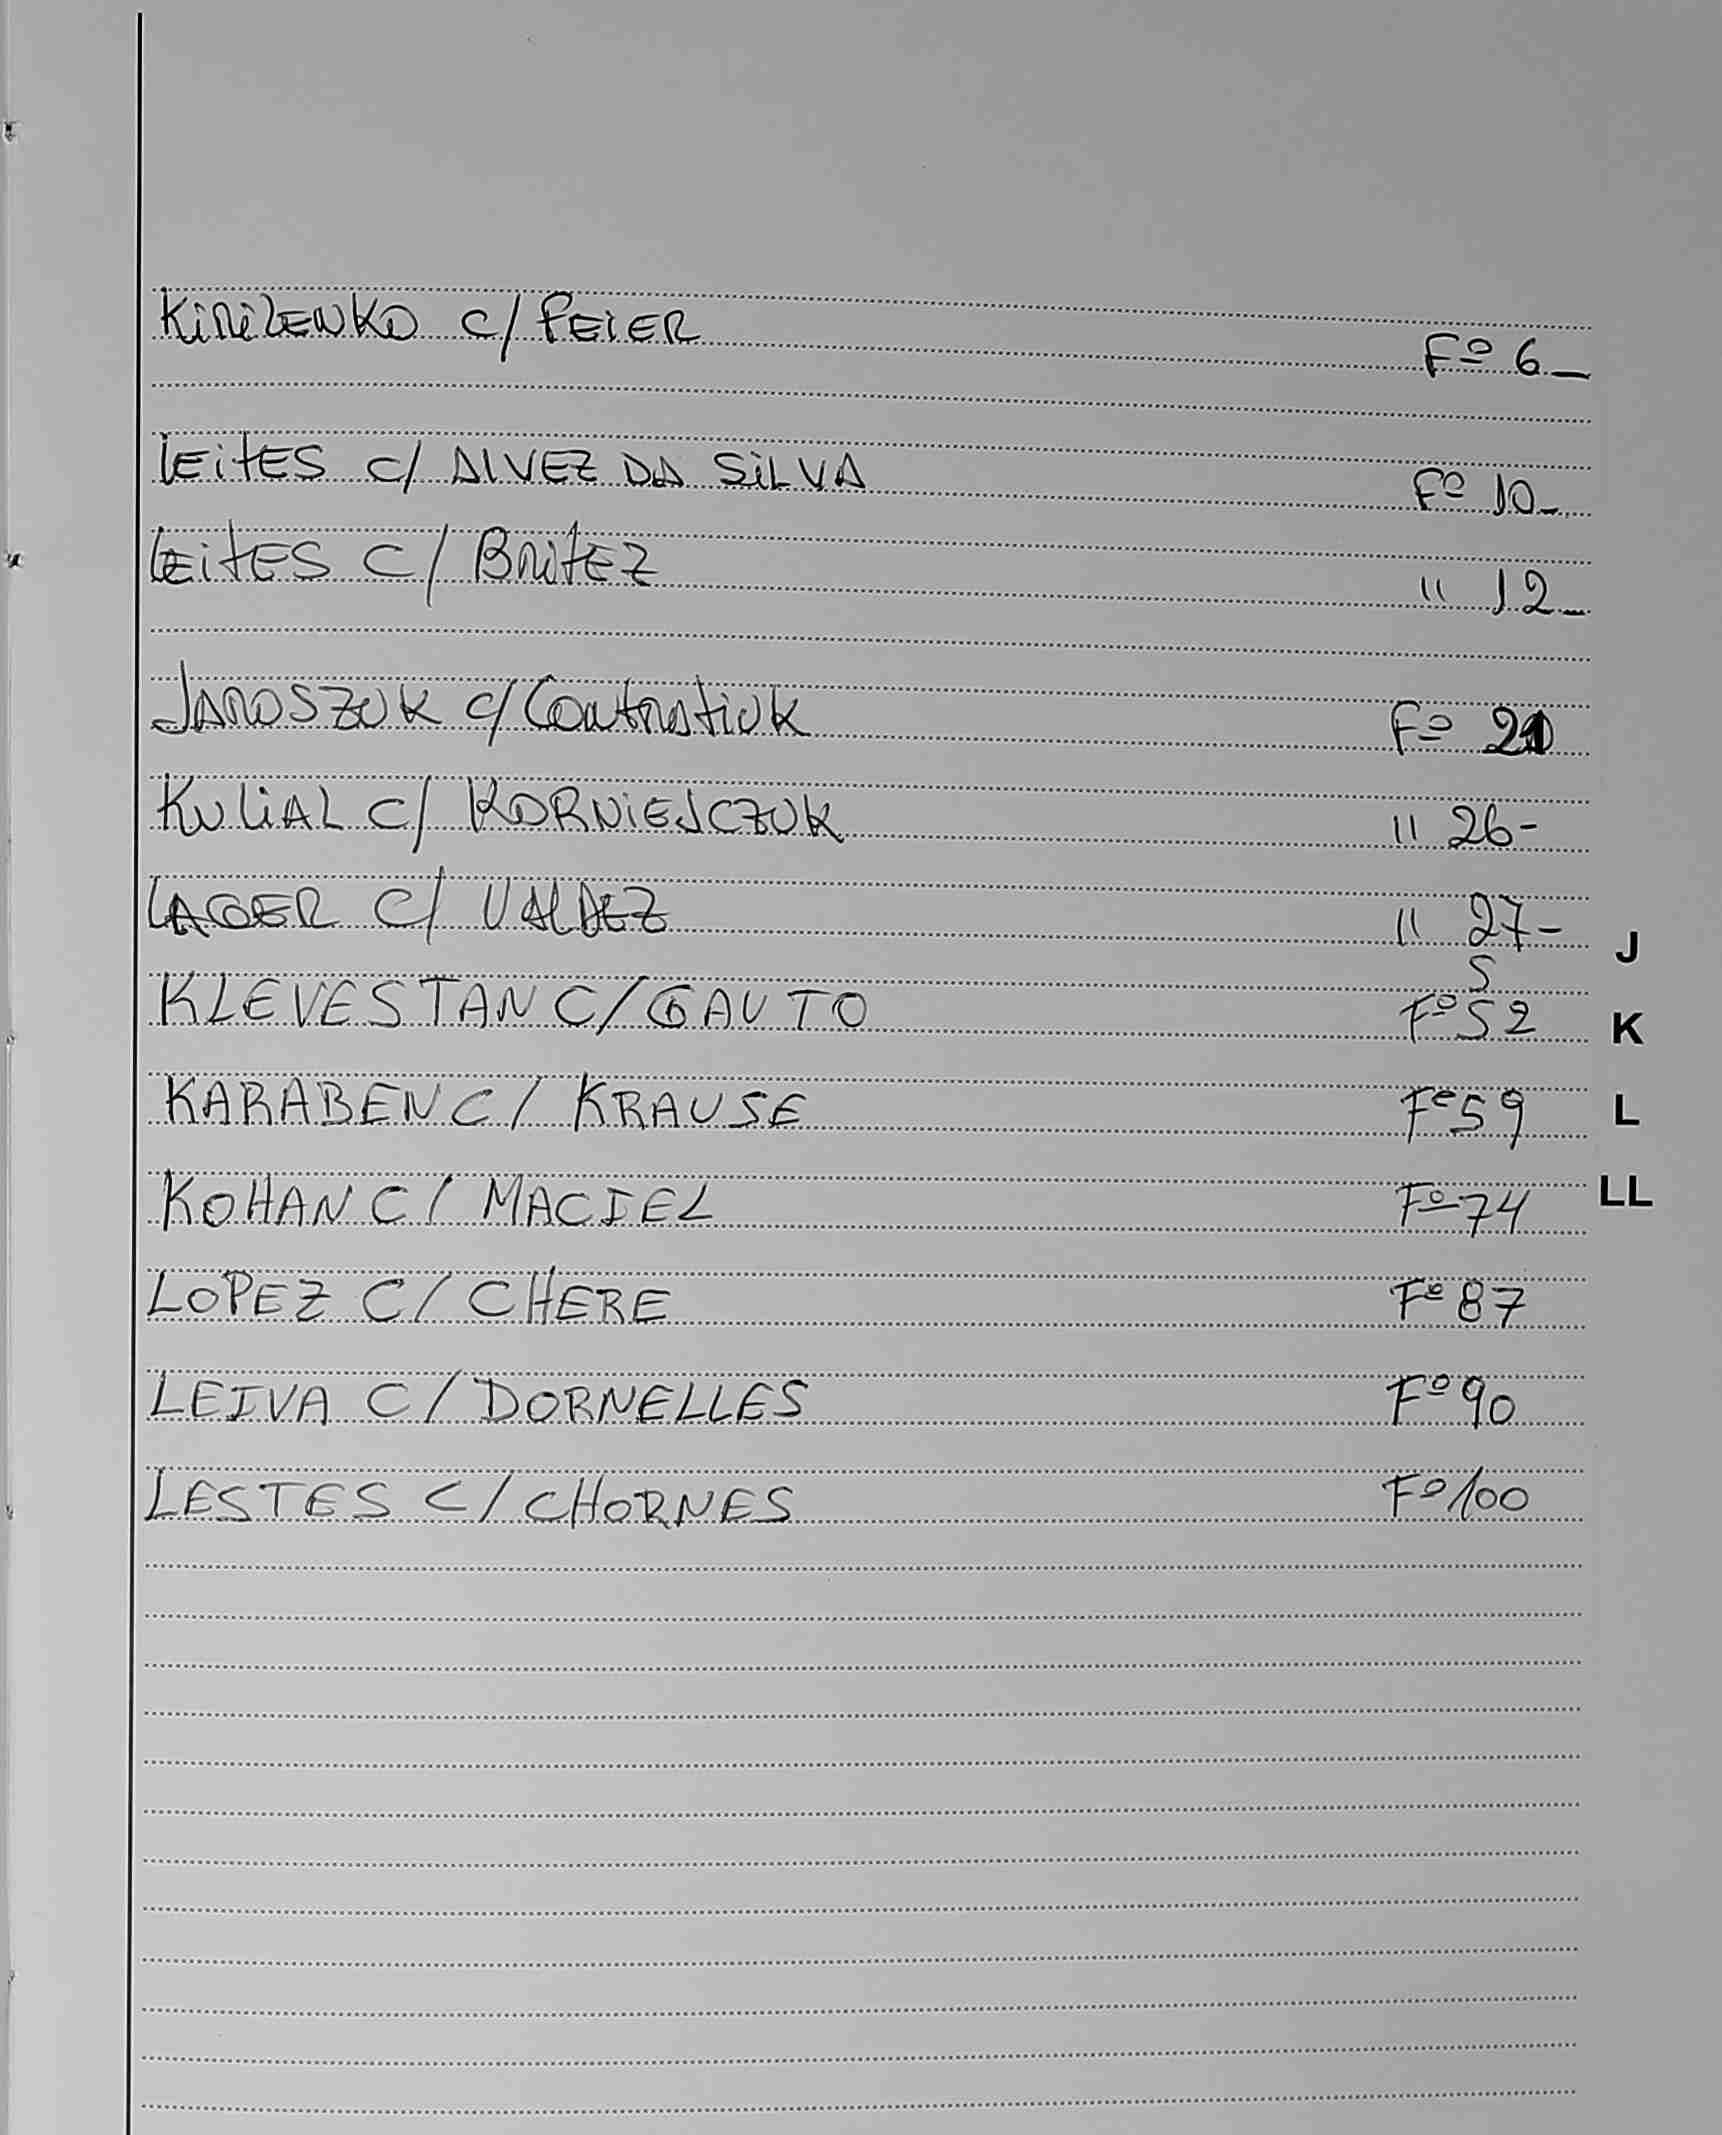 KIRILENKO C/ PEIER Fº 6_
LEITES C/ ALVEZ DA SILVA Fº 10_
LEITES C/ BRITEZ " 12_
JAROSZUK C/ Contratiuk Fº 21
KULIAL C/ KORNIEJCZUK " 26-
LAGER C/ VALDEZ " 27-
J
S
KLEVESTAN C/ GAUTO Fº 52
K
KARABEN C/ KRAUSE Fº 59
L
KOHAN C/ MACIEL Fº 74
LL
LOPEZ C/ CHERE Fº 87
LEIVA C/ DORNELLES Fº 90
LESTES C/ CHORNES Fº 100